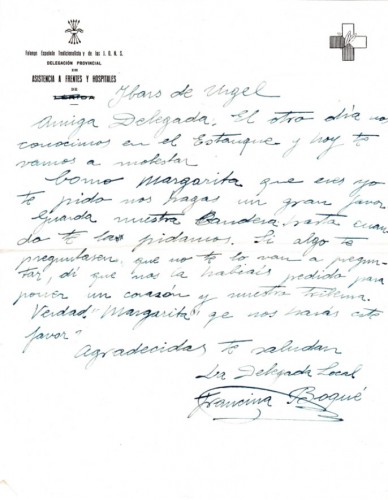 Falange Española Tradicionalista y de las J. O. N. S.
DELEGACIÓN PROVINCIAL
DE
ASISTENCIA A FRENTES Y HOSPITALES
DE
LERIDA
Ibars de Urgel
Amiga Delegada. El otro día nos
conocimos en el Estanque y hoy te
vamos a molestar
Como Margarita que eres yo
te pido nos hagas un gran favor
Guarda nuestra Bandera hasta cuan
do te la pidamos. Si algo te
preguntasen, que no te lo van a pregun
tar, di que nos la habiais pedido para
poner un corazón y nuestro
Verdad "Margarita" qe nos harás este
favor"
Agradecidas te saludan
La Delegada Local
Francina Boqué